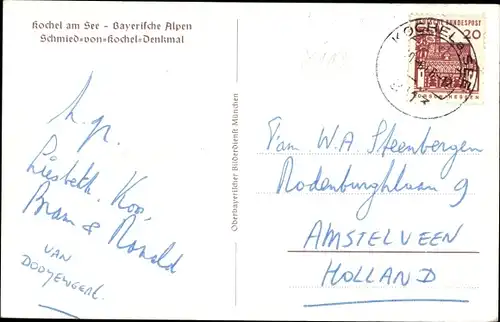 Kochel am See - Bayerische Alpen
Schmied-von-Kochel-Denkmal
h.gr.
Liesbeth, Koo,
Bram & Ronald
VAN
DOOYEWEERT.
Oberbayerischer Bilderdienst München
BUNDESPOST
20
KOCHEL a. SEE
Fam W.A. Steenbergen
Rodenburghlaan 9
AMSTELVEEN
HOLLAND